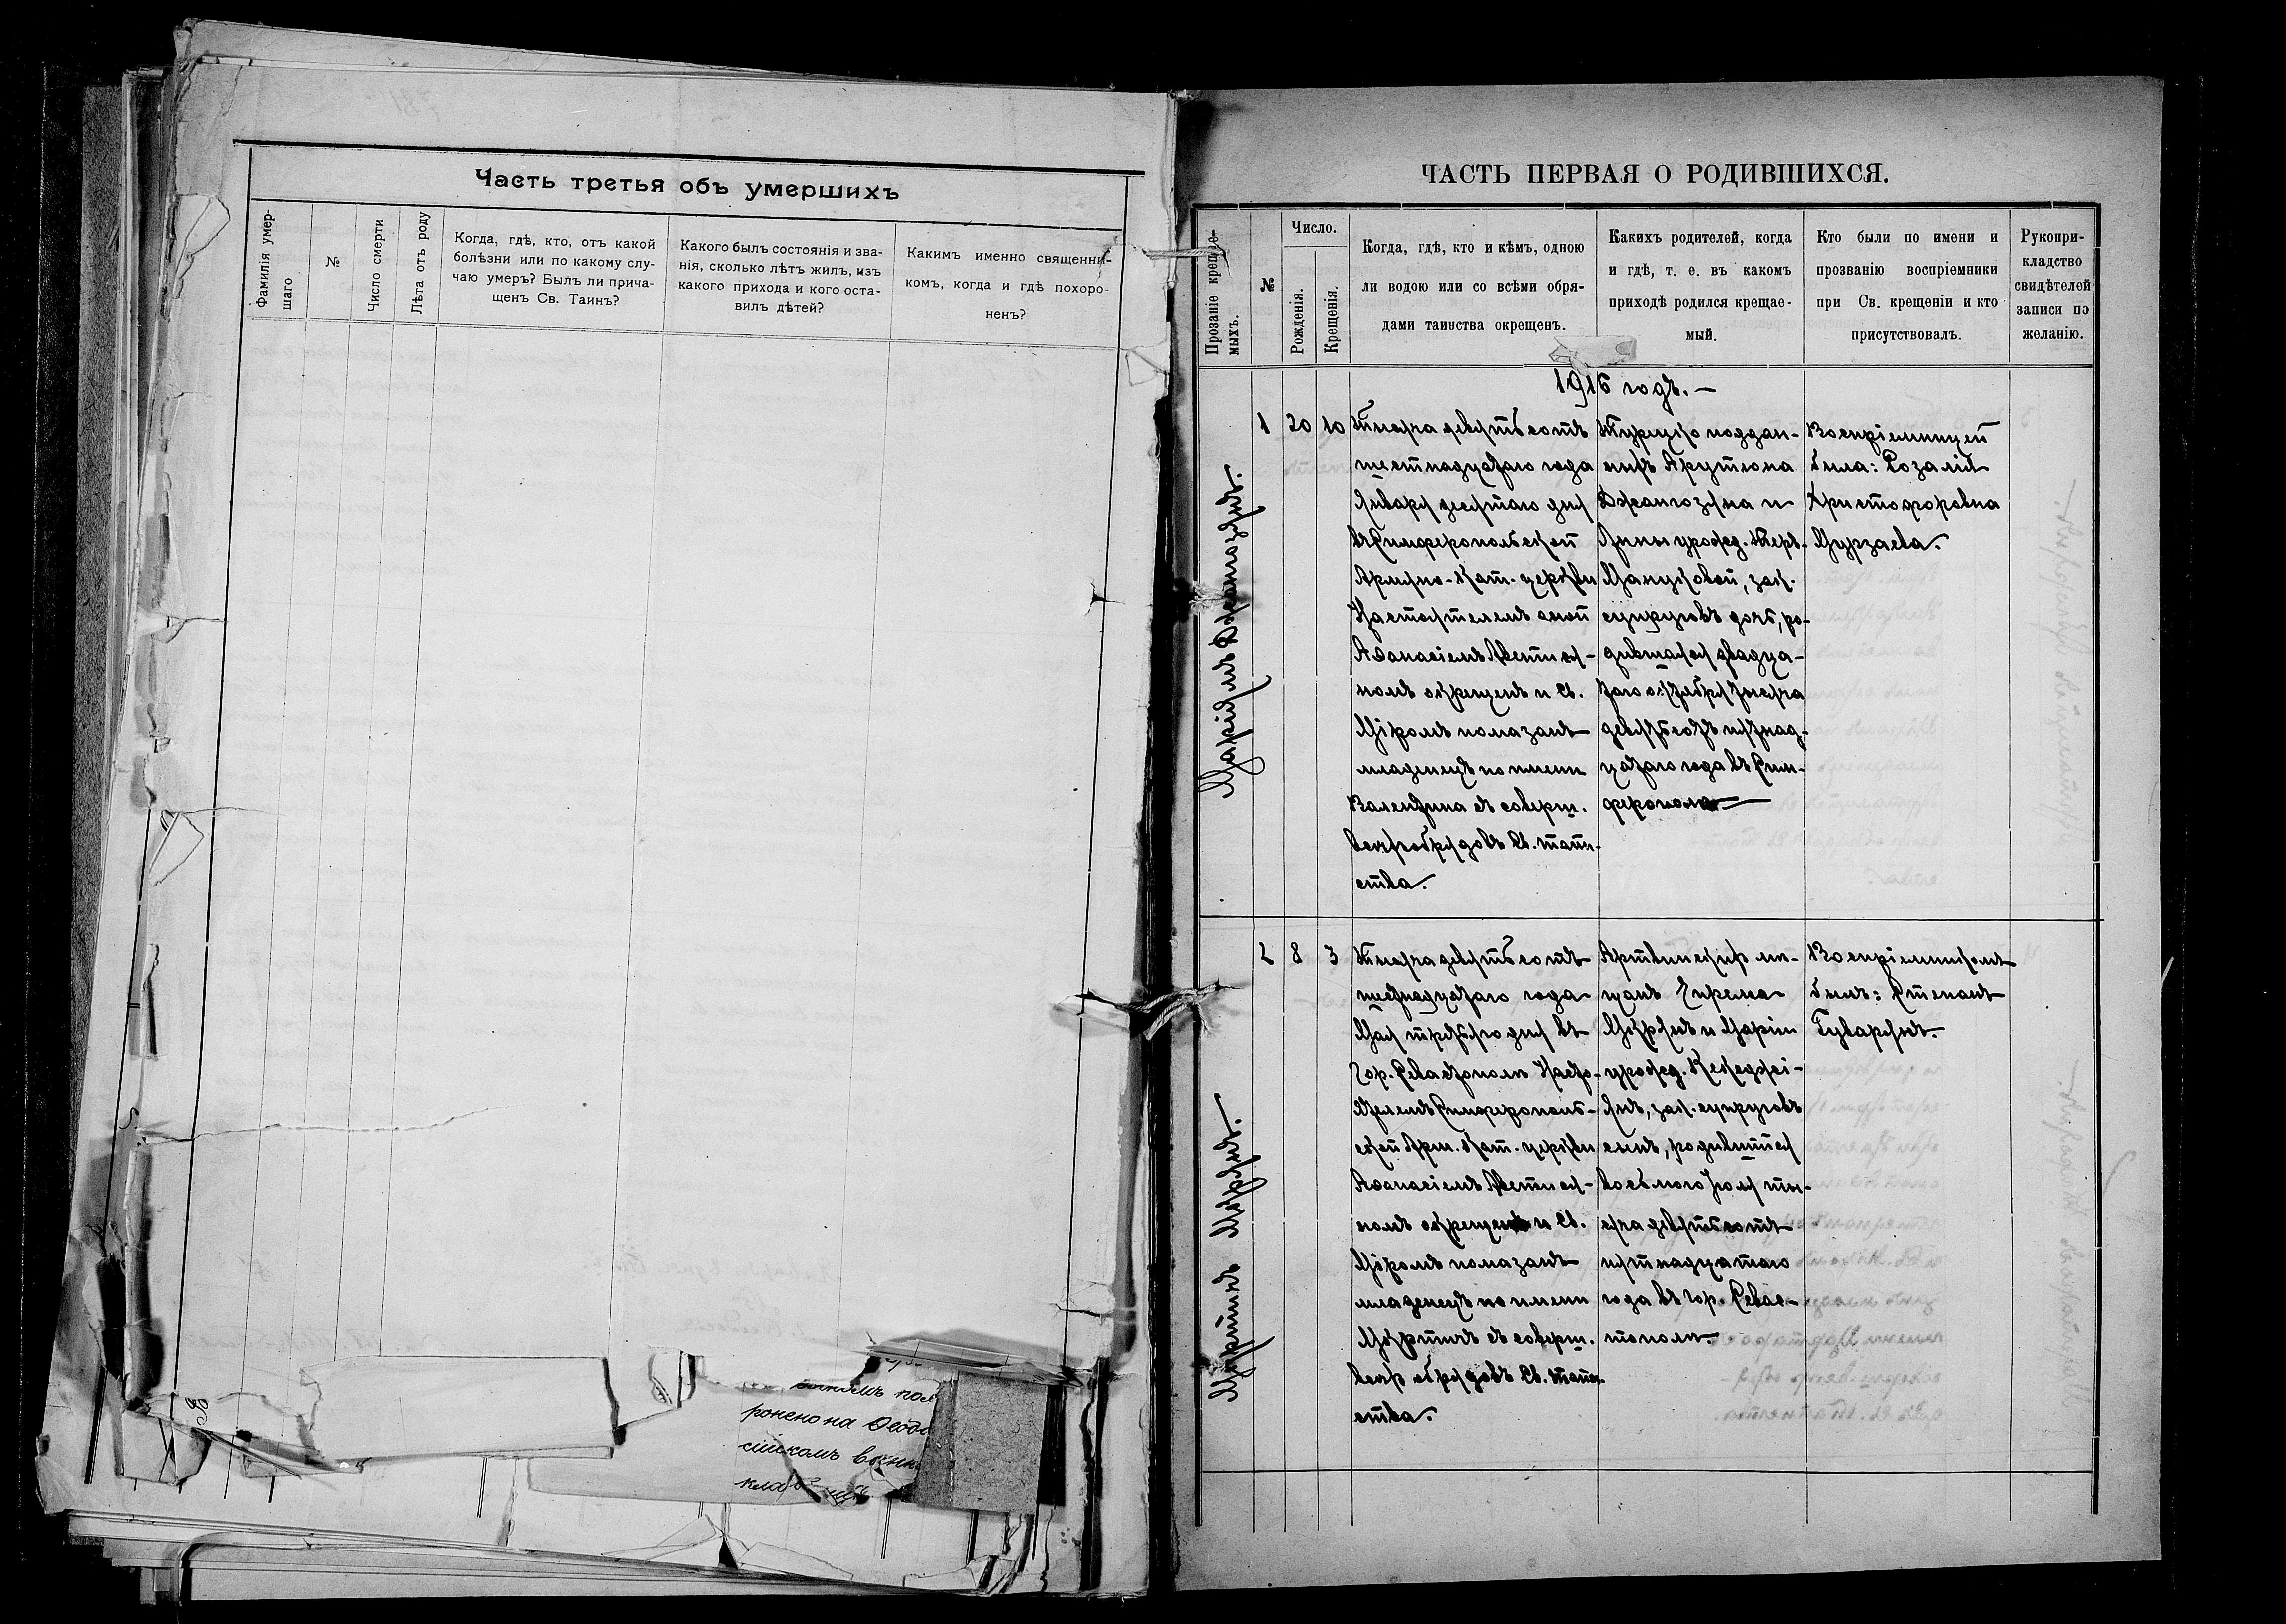 Часть третья объ умершихъ
Фамилія умер-
шаго
№
Число смерти
Лѣта отъ роду
Когда, гдѣ, кто, отъ какой
болѣзни или по какому слу-
чаю умеръ? Былъ ли прича-
щенъ Св. Таинъ?
Какого былъ состоянія и зва-
нія, сколько лѣтъ жилъ, изъ
какого прихода и кого оста-
вилъ дѣтей?
Какимъ именно священни-
комъ, когда и гдѣ похоро-
ненъ?
ронено на Ѳеодо
сійскомъ
ЧАСТЬ ПЕРВАЯ О РОДИВШИХСЯ.
Прозаніе крещае-
мыхъ.
№
Число.
Рожденія.
Крещенія.
Когда, гдѣ, кто и кѣмъ, одною
ли водою или со всѣми обря-
дами таинства окрещенъ.
Какихъ родителей, когда
и гдѣ, т. е. въ какомъ
приходѣ родился крещае-
мый.
Кто были по имени и
прозванію воспріемники
при Св. крещеніи и кто
присутствовалъ.
Рукопри-
кладство
свидѣтелей
записи по
желанію.
1916 годъ. —
1
20
10
Тысяча девятьсотъ
шестнадцатаго года
Января десятаго дня
въ Симферопольской
Армяно-Кат. церкви
Настоятелемъ оной
Аѳанасіемъ Аветися-
номъ окрещенъ и Св.
Мѵромъ помазанъ
младенецъ по имени
Валентина съ соверш.
всѣхъ обрядовъ Св. таин-
ства.
Турецко поддан-
ныхъ Арутюна
Джангозяна и
Анны урожд. Теръ-
Мануковой, зак.
супруговъ дочь, ро-
дившаяся двадца-
таго октября тысяча
девятьсотъ пятнад-
цатаго года въ Сим-
ферополѣ
Воспріемницей
была: Розалія
Христофоровна
Мурзаева.
2
8
3
Тысяча девятьсотъ
шестнадцатаго года
Мая третьяго дня въ
Гор. Севастополѣ Насто-
ятелемъ Симферополь-
ской Арм. Кат. церкви
Аѳанасіемъ Аветися-
номъ окрещенъ и Св.
Мѵромъ помазанъ
младенецъ по имени
Мкртичъ съ соверш.
всѣхъ обрядовъ Св. таин-
ства.
Артвинскихъ мѣ-
щанъ
и Маріи
урожд.
зак. супруговъ
сынъ, родившійся
восьмого Іюля ты-
сяча девятьсотъ
пятнадцатаго
года въ гор. Севас-
тополѣ.
Воспріемникомъ
былъ: Степанъ